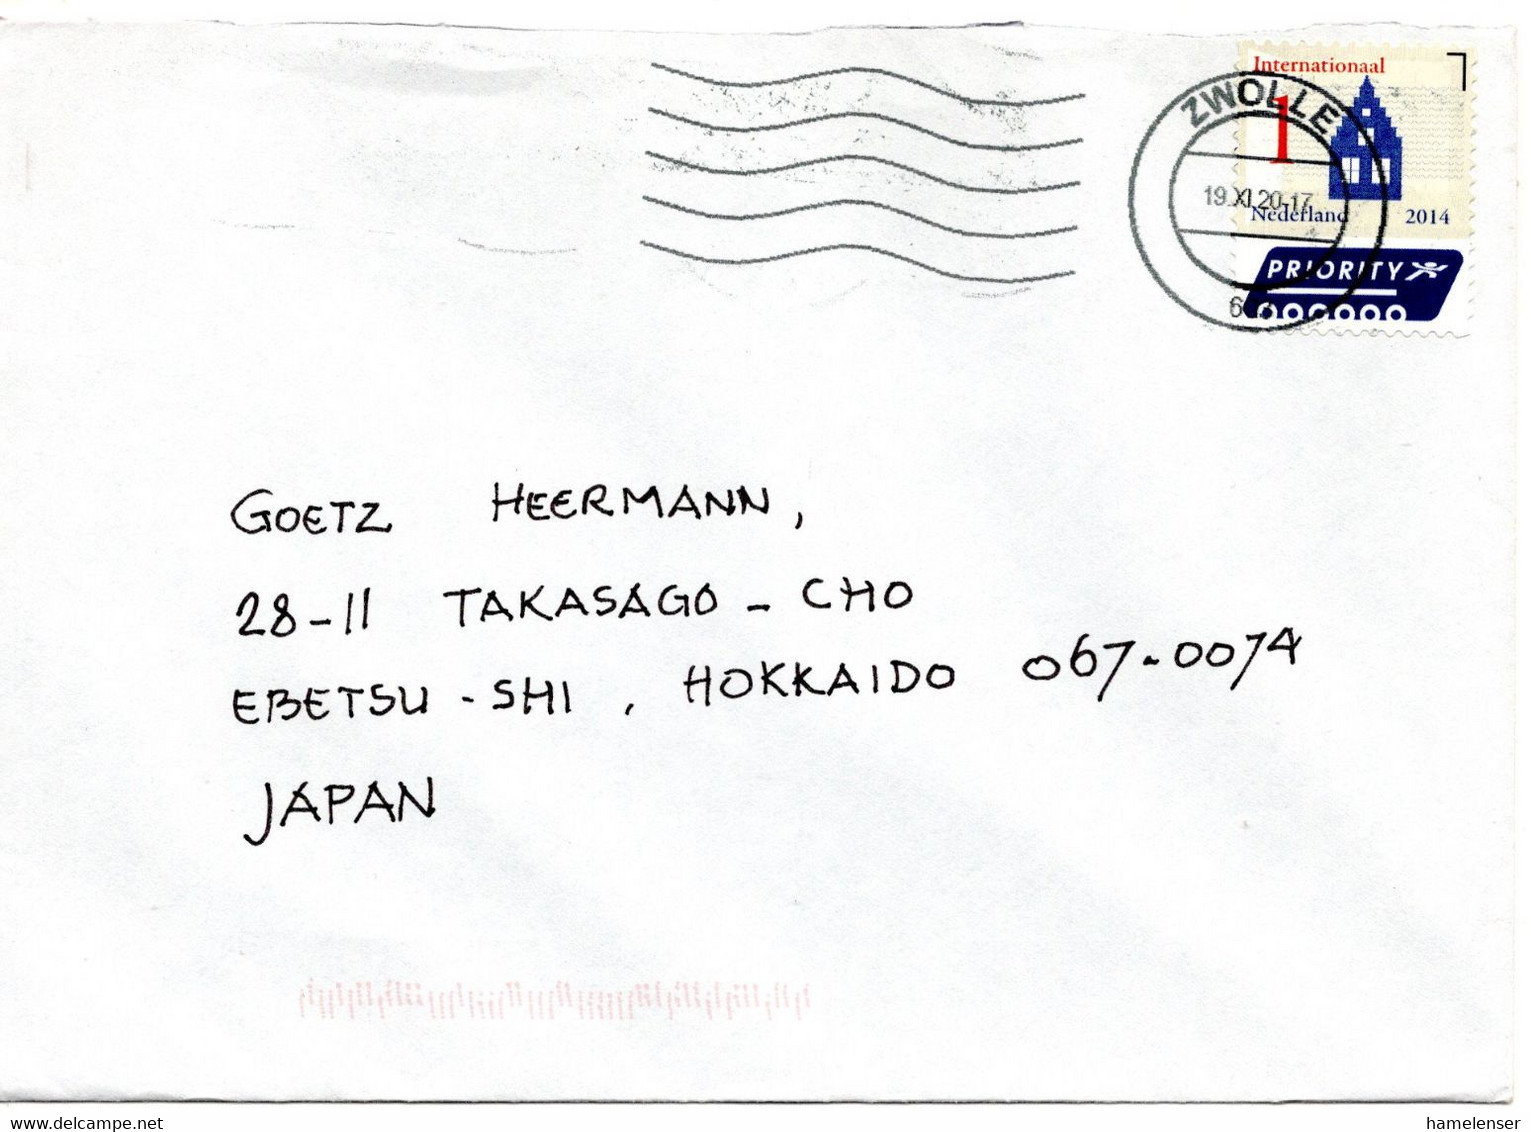 Internationaal
1
ZWOLLE
19.XI.20-17
Nederland 2014
PRIORITY
GOETZ HEERMANN,
28-11 TAKASAGO - CHO
EBETSU - SHI, HOKKAIDO 067-0074
JAPAN
www.delcampe.net
hamelenser